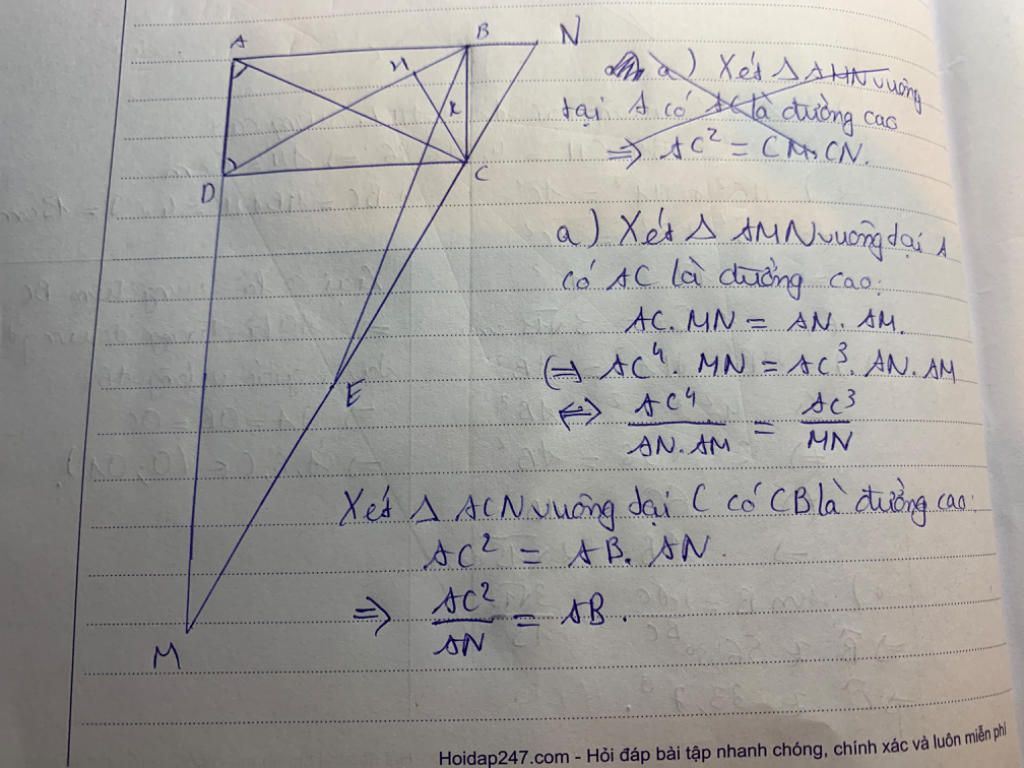 A
B
N
H
K
D
C
E
M
a) Xét Δ AHN vuông
tại A có AC là đường cao
=> AC² = CM. CN.
a) Xét Δ AMN vuông tại A
có AC là đường cao:
AC. MN = AN. AM.
(=) AC⁴. MN = AC³. AN. AM
<=> AC⁴/AN.AM = AC³/MN
Xét Δ ACN vuông tại C có CB là đường cao:
AC² = AB. AN.
=> AC²/AN = AB.
Hoidap247.com - Hỏi đáp bài tập nhanh chóng, chính xác và luôn miễn phí